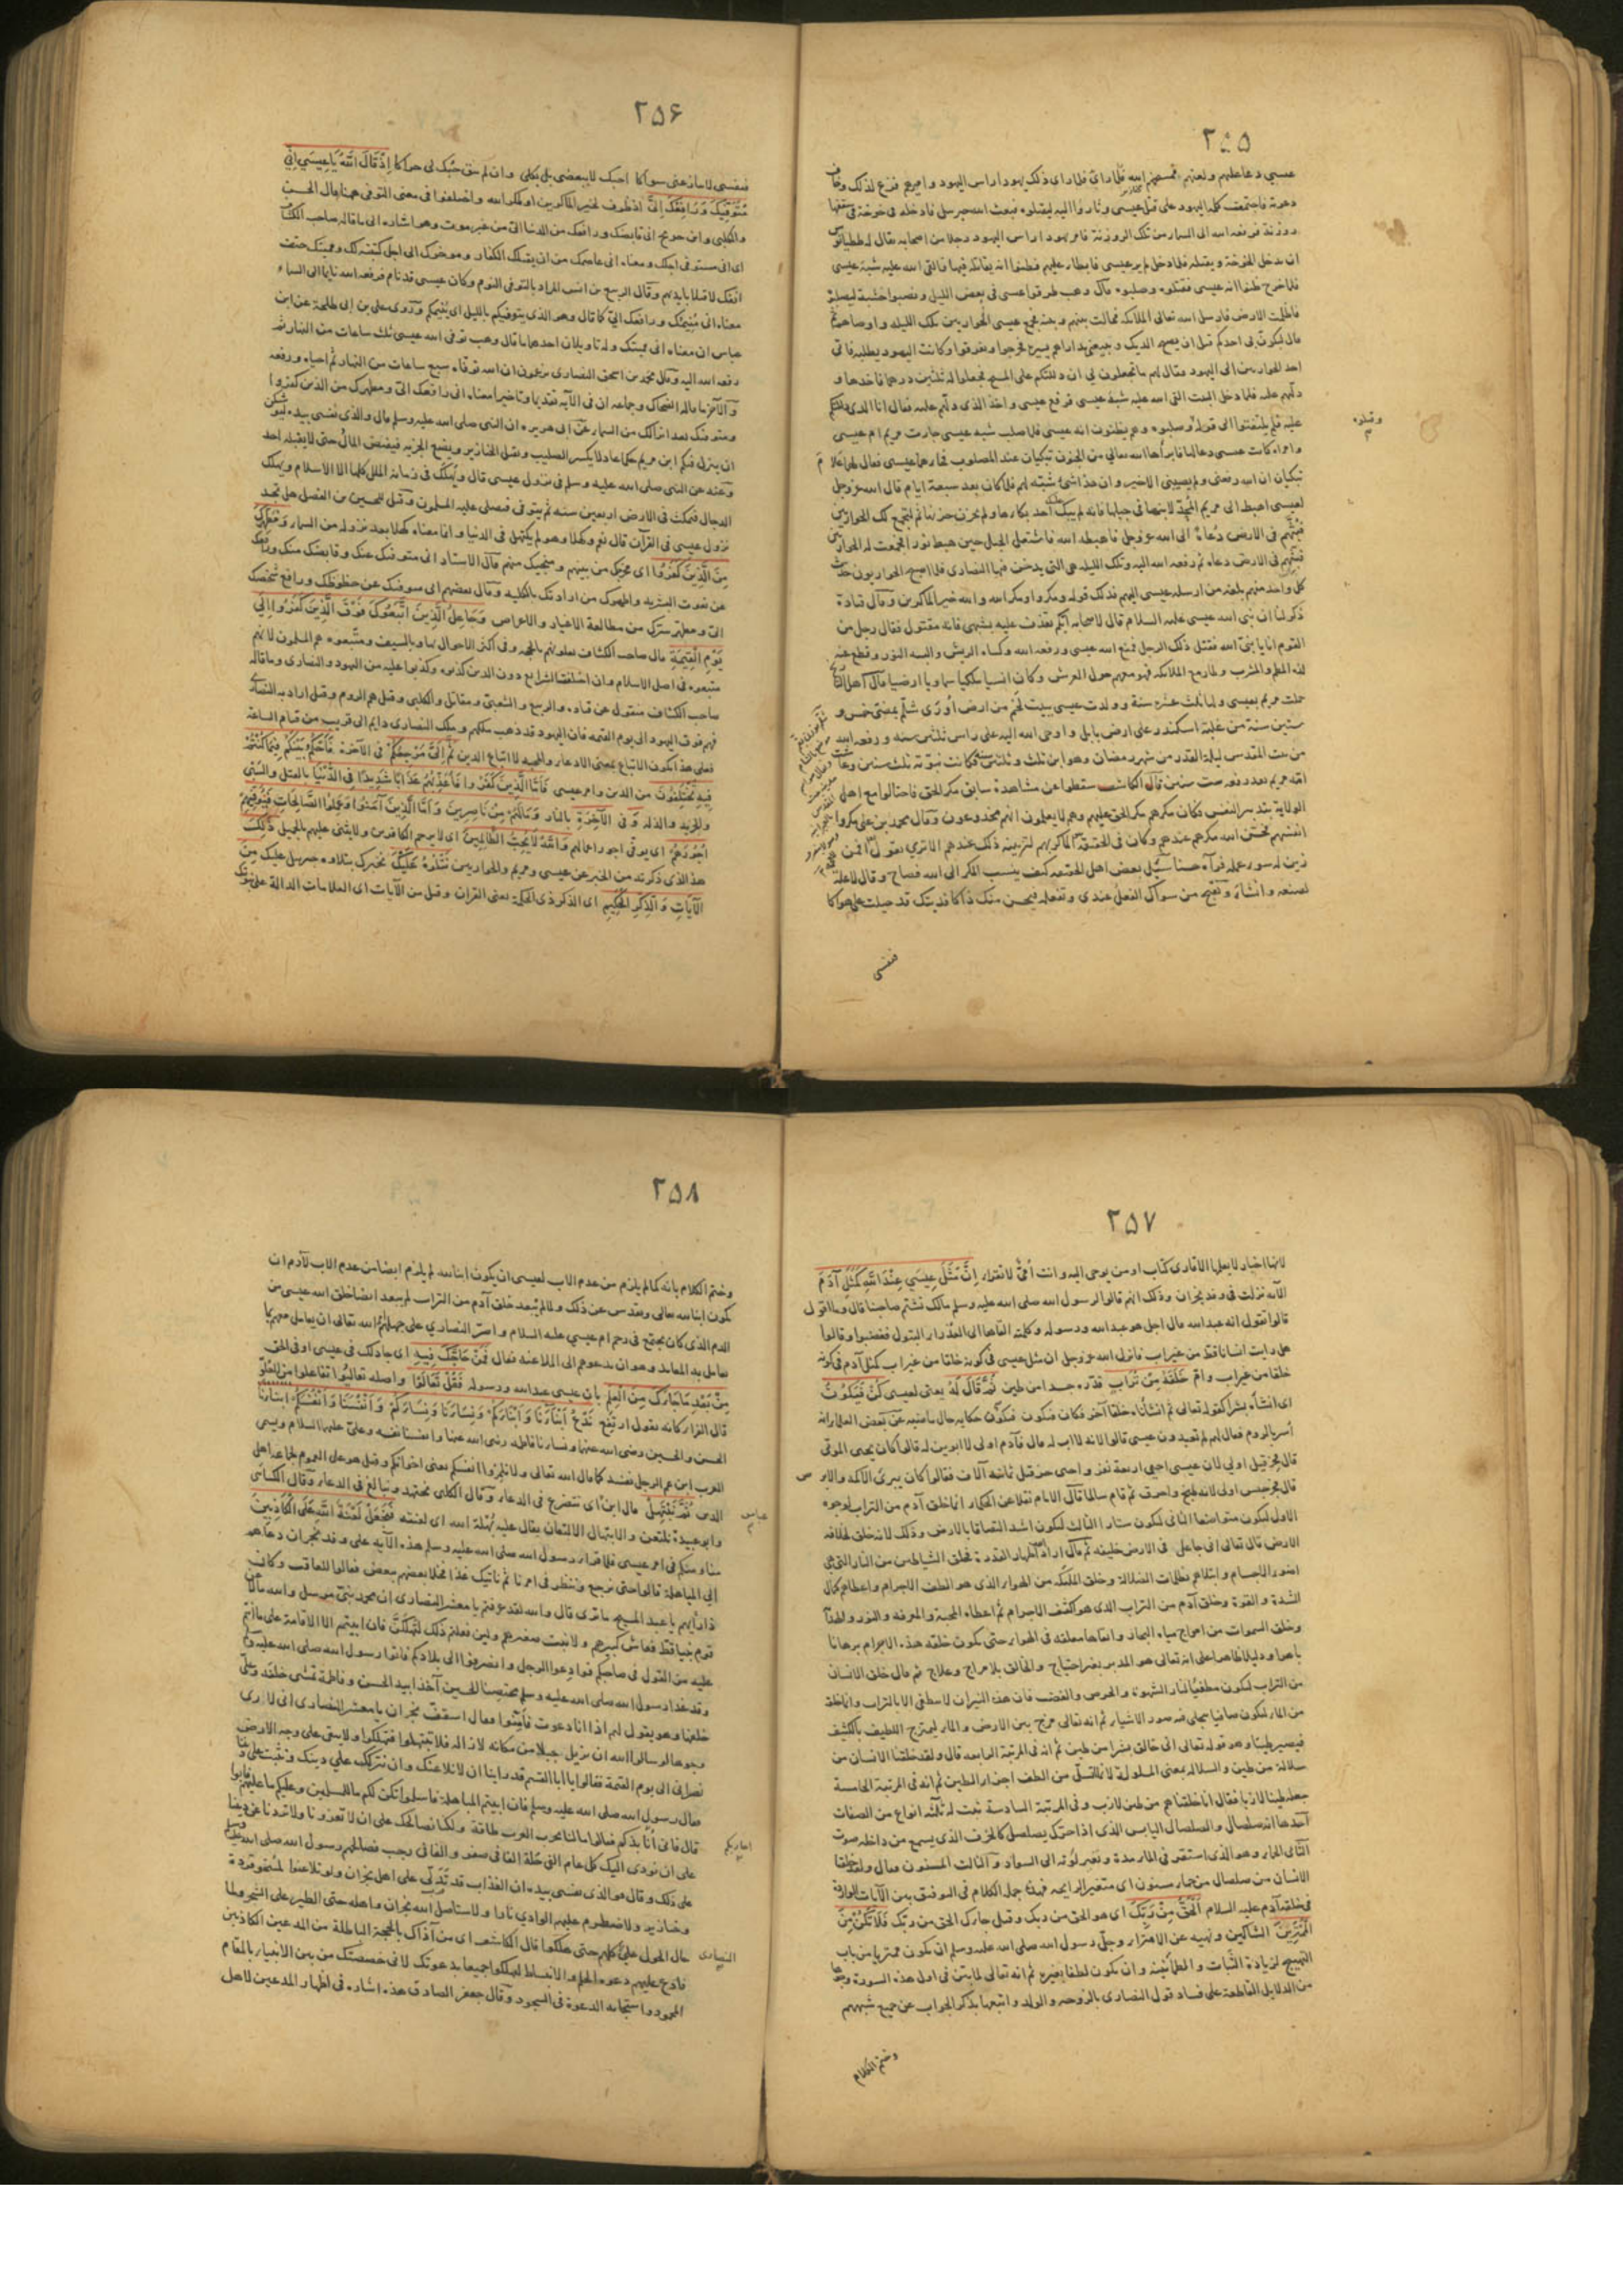 ٢٥٥
عيسى دعا عليهم ولعنهم فمسخهم الله فلما رأى ذلك يهودا راس اليهود واميرهم فزع لذلك وخاف
دعوة فاجتمعت كلمة اليهود على قتل عيسى وثاروا اليه ليقتلوه فبعث الله جبرئيل فادخله في خوخة في سقفها
روزنة فرفعه الله الى السماء من تلك الروزنة فامر يهودا راس اليهود رجلا من اصحابه يقال له ططيانوس
ان يدخل الخوخة ويقتله فلما دخل لم ير عيسى فابطأ عليهم فظنوا انه يقاتله فيها فالقى الله عليه شبه عيسى
فلما خرج ظنوا انه عيسى فقتلوه وصلبوه قال وهب طرقوا عيسى في بعض الليل ونصبوا خشبة ليصلبوه
فاظلمت الارض فارسل الله تعالى الملائكة فحالت بينهم وبينه فجمع عيسى الحواريين تلك الليلة واوصاهم ثم
قال ليكفرن بي احدكم قبل ان يصيح الديك ويبيعني بدراهم يسيرة فخرجوا وتفرقوا وكانت اليهود يطلبه فاتى
احد الحواريين الى اليهود وقال لهم ما تجعلون لي ان دللتكم على المسيح فجعلوا له ثلثين درهما فاخذها و
دلهم عليه فلما دخل البيت القى الله عليه شبه عيسى فرفع عيسى واخذ الذي دلهم عليه فقال انا الذي دللتكم
عليه فلم يلتفتوا الى قوله وصلبوه وهم يظنون انه عيسى فلما صلب شبه عيسى جاءت مريم ام عيسى
وقتلوه
وامراة كانت عيسى دعا لها فابرأها الله تعالى من الجنون تبكيان عند المصلوب فجاءهما عيسى فقال لهما علام
تبكيان ان الله رفعني ولم يصيبني الا خير وان هذا شئ شبه لهم فلما كان بعد سبعة ايام قال الله عز وجل
لعيسى اهبط الى مريم المجدلانية في جبلها فانه لم يبك عليك احد بكاءها ولم يحزن حزنها ثم ليجتمع لك الحواريين
فبثهم في الارض دعاة الى الله عز وجل فاهبطه الله فاشتعل الجبل حين هبط نورا فجمعت له الحواريين
فبثهم في الارض دعاة ثم رفعه الله اليه وتلك الليلة هي التي يدخن فيها النصارى فلما اصبح الحواريون حدث
كل واحد منهم بلغة من ارسله عيسى اليهم فذلك قوله ومكروا ومكر الله والله خير الماكرين وقال قتادة
ذكر لنا ان نبي الله عيسى عليه السلام قال لاصحابه ايكم يقذف عليه شبهي فانه مقتول فقال رجل من
القوم انا يا نبي الله فقتل ذلك الرجل فمنع الله عيسى ورفعه الله وكساه الريش والبسه النور وقطع عنه
لذة المطعم والمشرب وطار مع الملائكة فهو معهم حول العرش وكان انسيا ملكيا سماويا ارضيا قال اهل التاريخ
حملت مريم بعيسى ولها ثلث عشرة سنة وولدت عيسى ببيت لحم من ارض اورى شلم بمضى خمس و
ستين سنة من غلبة اسكندر على ارض بابل واوحى الله اليه على راس ثلثين سنة ورفعه الله
من بيت المقدس ليلة القدر من شهر رمضان وهو ابن ثلث وثلثين سنة فكانت نبوته ثلث سنين وعاشت
امه مريم بعد رفعه ست سنين قال الكاشف سقطوا عن مشاهدة سابق مكر الحق فاحتالوا مع اهل
الولاية بتدبير النفس فكان مكرهم مكر الحق عليهم وهم لا يعلمون انهم مخدوعون وقال محمد بن علي مكروا
انفسهم فحسن الله مكرهم عندهم وكان في الحقيقة الماكر بهم لتزيينه ذلك عندهم الا ترى يقول افمن
زين له سوء عمله فرآه حسنا سئل بعض اهل الحقيقة كيف ينسب المكر الى الله فصاح وقال لا علة
لصنعه وانشأ ويقبح من سواك الفعل عندي وتفعله فيحسن منك ذاكا فديتك قد جبلت على هواكا
فنفسي
٢٥۶
فنفسي لا تنازعني سواكا احبك لا ببعضي بل بكلي وان لم يبق حبك لي حراكا اِذْ قَالَ اللّٰهُ يَا عِيسَى اِنِّي
مُتَوَفِّيكَ وَرَافِعُكَ اِلَيَّ اذ ظرف لخير الماكرين او لمكر الله واختلفوا في معنى التوفي ههنا قال الحسن
والكلبي وابن جريج اني قابضك ورافعك من الدنيا الي من غير موت وهو اشارة الى ما قاله صاحب الكشاف
اي اني مستوفي اجلك ومعناه اني عاصمك من ان يقتلك الكفار ومؤخرك الى اجل كتبته لك ومميتك حتف
انفك لا قتلا بايديهم وقال الربيع بن انس المراد بالتوفي النوم وكان عيسى قد نام فرفعه الله نايما الى السماء
معناه اني منيمك ورافعك الي كما قال وهو الذي يتوفيكم بالليل اي ينيمكم وروى علي بن ابي طلحة عن ابن
عباس ان معناه اني مميتك وله تاويلان احدهما ما قال وهب توفى الله عيسى ثلث ساعات من النهار ثم
رفعه الله اليه وقال محمد بن اسحق النصارى يزعمون ان الله توفاه سبع ساعات من النهار ثم احياه ورفعه
والآخر ما قاله الضحاك وجماعة ان في الآية تقديما وتاخيرا معناه اني رافعك الي ومطهرك من الذين كفروا
ومتوفيك بعد انزالك من السماء عن ابي هريرة ان النبي صلى الله عليه وسلم قال والذي نفسي بيده ليوشكن
ان ينزل فيكم ابن مريم حكما عادلا يكسر الصليب ويقتل الخنازير ويضع الجزية فيفيض المال حتى لا يقبله احد
وعنه عن النبي صلى الله عليه وسلم في نزول عيسى قال ويهلك في زمانه الملل كلها الا الاسلام ويهلك
الدجال فيمكث في الارض اربعين سنة ثم يتوفى فيصلي عليه المسلمون وقيل للحسين بن الفضل هل تجد
نزول عيسى في القرآن قال نعم وكهلا وهو لم يكتهل في الدنيا وانما معناه كهلا بعد نزوله من السماء وَمُطَهِّرُكَ
مِنَ الَّذِينَ كَفَرُوا اي مخرجك من بينهم ومنجيك منهم قال الاستاد اني متوفيك عنك وقابضك منك ورافعك
عن نعوت البشرية ومطهرك من ارادتك بالكلية وقال بعضهم اني متوفيك عن حظوظك ورافع شخصك
الي ومطهر سرك من مطالعة الاغيار والاعراض وَجَاعِلُ الَّذِينَ اتَّبَعُوكَ فَوْقَ الَّذِينَ كَفَرُوا اِلَى
يَوْمِ الْقِيٰمَةِ قال صاحب الكشاف يعلونهم بالحجة وفي اكثر الاحوال بها وبالسيف ومتبعوه هم المسلمون لانهم
متبعوه في اصل الاسلام وان اختلفت الشرايع دون الذين كذبوه وكذبوا عليه من اليهود والنصارى وما قاله
صاحب الكشاف منقول عن قتادة والربيع والشعبي ومقاتل والكلبي وقيل هم الروم وقيل اراد به النصارى
فهم فوق اليهود الى يوم القيمة فان اليهود قد ذهب ملكهم وملك النصارى دايم الى قريب من قيام الساعة
فعلى هذا يكون الاتباع بمعنى الادعاء والمحبة لا اتباع الدين ثُمَّ اِلَيَّ مَرْجِعُكُمْ في الآخرة فَأَحْكُمُ بَيْنَكُمْ فِيمَا كُنْتُمْ
فِيهِ تَخْتَلِفُونَ من الدين وامر عيسى فَأَمَّا الَّذِينَ كَفَرُوا فَأُعَذِّبُهُمْ عَذَابًا شَدِيدًا فِي الدُّنْيَا بالقتل والسبي
والجزية والذلة وَفي الْآخِرَةِ بالنار وَمَا لَهُمْ مِنْ نَاصِرِينَ وَأَمَّا الَّذِينَ آمَنُوا وَعَمِلُوا الصَّالِحَاتِ فَيُوَفِّيهِمْ
أُجُورَهُمْ اي يوفي اجور اعمالهم وَاللّٰهُ لَا يُحِبُّ الظَّالِمِينَ اي لا يرحم الكافرين ولا يثني عليهم بالجميل ذٰلِكَ
هذا الذي ذكرته من الخبر عن عيسى ومريم والحواريين نَتْلُوهُ عَلَيْكَ نخبرك بتلاوة جبريل عليك مِنَ
الْآيَاتِ وَالذِّكْرِ الْحَكِيمِ اي الذكر ذي الحكمة يعني القرآن وقيل من الآيات اي العلامات الدالة على نبوتك
٢٥٧
لانها اخبار لا يعلمها الا قارئ كتاب او من يوحى اليه وانت امي لا تقرا اِنَّ مَثَلَ عِيسَى عِنْدَ اللّٰهِ كَمَثَلِ آدَمَ
الآية نزلت في وفد نجران وذلك انهم قالوا لرسول الله صلى الله عليه وسلم مالك تشتم صاحبنا قال وما اقول
قالوا تقول انه عبد الله قال اجل هو عبد الله ورسوله وكلمته القاها الى العذراء البتول فغضبوا وقالوا
هل رايت انسانا قط من غير اب فانزل الله عز وجل ان مثل عيسى في كونه خلقا من غير اب كمثل آدم في كونه
خلقا من غير اب وام خَلَقَهُ مِنْ تُرَابٍ قدره جسدا من طين ثُمَّ قَالَ لَهُ يعني لعيسى كُنْ فَيَكُونُ
اي انشأه بشرا كقوله تعالى ثم انشأناه خلقا آخر فكان فيكون فيكون حكاية حال ماضية عن بعض العلماء انه
أسر بالروم فقال لهم لم تعبدون عيسى قالوا لانه لا اب له قال فآدم اولى لا ابوين له قالوا كان يحيى الموتى
قال فحزقيل اولى لان عيسى احيى اربعة نفر واحيى حزقيل ثمانية آلاف فقالوا كان يبرئ الاكمه والابرص
قال فجرجيس اولى لانه طبخ واحرق ثم قام سالما قال الامام نقلا عن الحكماء انما خلق آدم من التراب لوجوه
الاول ليكون متواضعا الثاني ليكون ستارا الثالث ليكون اشد التصاقا بالارض وذلك لانه خلق لخلافة
الارض قال تعالى اني جاعل في الارض خليفة ثم قال اراد اظهار القدرة فخلق الشياطين من النار التي هي
اضوء الاجسام وابتلاهم بظلمات الضلالة وخلق الملئكة من الهواء الذي هو الطف الاجرام واعطاهم كمال
الشدة والقوة وخلق آدم من التراب الذي هو اكثف الاجرام ثم اعطاه المحبة والمعرفة والنور والهداية
وخلق السموات من امواج مياه البحار وابقاها معلقة في الهواء حتى يكون خلقه هذه الاجرام برهانا
باهرا ودليلا ظاهرا على انه تعالى هو المدبر بغير احتياج والخالق بلا مزاج وعلاج ثم قال خلق الانسان
من التراب ليكون مطفيا لنار الشهوة والحرص والغضب فان هذه النيران لا تطفى الا بالتراب وانما خلق
من الماء ليكون صافيا يتجلى فيه صور الاشياء ثم انه تعالى مزج بين الارض والماء ليمتزج اللطيف بالكثيف
فيصير طينا وهو قوله تعالى اني خالق بشرا من طين ثم انه في المرتبة الرابعة قال ولقد خلقنا الانسان من
سلالة من طين والسلالة بمعنى المسلولة لانها تسل من الطف اجزاء الطين ثم انه في المرتبة الخامسة
جعله طينا لازبا فقال انا خلقناهم من طين لازب وفي المرتبة السادسة ثبت له ثلثة انواع من الصفات
احدها انه صلصال والصلصال اليابس الذي اذا حرك يصلصل كالخزف الذي يسمع من داخله صوت
الثاني الحماء وهو الذي استقر في الماء مدة وتغير لونه الى السواد والثالث المسنون فقال ولقد خلقنا
الانسان من صلصال من حماء مسنون اي متغير الرايحة فهذه جملة الكلام في التوفيق بين الآيات الواردة
في خلقة آدم عليه السلام اَلْحَقُّ مِنْ رَبِّكَ اي هو الحق من ربك وقيل جاءك الحق من ربك فَلَا تَكُنْ مِنَ
الْمُمْتَرِينَ الشاكين ونهيه عن الامتراء وجل رسول الله صلى الله عليه وسلم ان يكون ممتريا من باب
التهييج لزيادة الثبات والطمأنينة وان يكون لطفا بغيره ثم انه تعالى لما بين في اول هذه السورة وجوها
من الدلايل القاطعة على فساد قول النصارى بالزوجة والولد واتبعها بذكر الجواب عن جميع شبههم
وختم الكلام
٢٥٨
وختم الكلام بانه كما لم يلزم من عدم الاب لعيسى ان يكون ابنا لله لم يلزم ايضا من عدم الاب لآدم ان
يكون ابنا لله تعالى وتقدس عن ذلك ولما لم يبعد خلق آدم من التراب لم يبعد ايضا خلق الله عيسى من
الدم الذي كان يجتمع في رحم ام عيسى عليه السلام واصر النصارى على جهلهم امر الله تعالى ان يعامل معهم بما
يعامل به المعاند وهو ان يدعوهم الى الملاعنة فقال فَمَنْ حَاجَّكَ فِيهِ اي جادلك في عيسى او في الحق
مِنْ بَعْدِ مَا جَاءَكَ مِنَ الْعِلْمِ بان عيسى عبد الله ورسوله فَقُلْ تَعَالَوْا واصله تعاليوا تفاعلوا من العلو
قال الفراء كانه يقول ارتفع نَدْعُ أَبْنَاءَنَا وَأَبْنَاءَكُمْ وَنِسَاءَنَا وَنِسَاءَكُمْ وَأَنْفُسَنَا وَأَنْفُسَكُمْ ابناءنا
الحسن والحسين رضي الله عنهما ونساءنا فاطمة رضي الله عنها وانفسنا نفسه وعلي عليهما السلام ويسمى
العرب ابن عم الرجل نفسه كما قال الله تعالى ولا تلمزوا انفسكم يعني اخوانكم وقيل هو على العموم لجماعة اهل
الدين ثُمَّ نَبْتَهِلْ قال ابن عباس اي نتضرع في الدعاء وقال الكلبي نجتهد ونبالغ في الدعاء وقال الكسائي
وابو عبيدة نلتعن والابتهال الالتعان يقال عليه بهلة الله اي لعنته فَنَجْعَلْ لَعْنَةَ اللّٰهِ عَلَى الْكَاذِبِينَ
منا ومنكم في امر عيسى فلما قرا رسول الله صلى الله عليه وسلم هذه الآية على وفد نجران دعاهم
الى المباهلة قالوا حتى نرجع وننظر في امرنا ثم ناتيك غدا فخلا بعضهم ببعض فقالوا للعاقب وكان
ذا رأيهم يا عبد المسيح ما ترى قال والله لقد عرفتم يا معشر النصارى ان محمد نبي مرسل والله ما لاعن
قوم نبيا قط فعاش كبيرهم ولا نبت صغيرهم ولئن فعلتم ذلك لتهلكن فان ابيتم الا الاقامة على ما انتم
عليه من القول في صاحبكم فوادعوا الرجل وانصرفوا الى بلادكم فاتوا رسول الله صلى الله عليه وسلم
وقد غدا رسول الله صلى الله عليه وسلم محتضنا للحسين آخذا بيد الحسن وفاطمة تمشي خلفه وعلي
خلفها وهو يقول لهم اذا انا دعوت فأمنوا فقال اسقف نجران يا معشر النصارى اني لارى
وجوها لو سالوا الله ان يزيل جبلا من مكانه لازاله فلا تبتهلوا فتهلكوا ولا يبقى على وجه الارض
نصراني الى يوم القيمة فقالوا يا ابا القسم قد راينا ان لا نلاعنك وان نتركك على دينك ونثبت على ديننا
فقال رسول الله صلى الله عليه وسلم فان ابيتم المباهلة فاسلموا يكن لكم ما للمسلمين وعليكم ما عليهم فابوا
قال فاني انابذكم فقالوا ما لنا بحرب العرب طاقة ولكنا نصالحك على ان لا تغزونا ولا تردنا عن ديننا
على ان نودي اليك كل عام الفي حلة الفا في صفر والفا في رجب فصالحهم رسول الله صلى الله عليه وسلم
على ذلك وقال والذي نفسي بيده ان العذاب قد تدلى على اهل نجران ولو تلاعنوا لمسخوا قردة
وخنازير ولاضطرم عليهم الوادي نارا ولاستأصل الله نجران واهله حتى الطير على الشجر ولما
حال الحول على النصارى كلهم حتى هلكوا قال الكاشف اي من آذاك بالحجة الباطلة من المدعين الكاذبين
فادع عليهم دعوة الحلم والانبساط ليهلكوا جميعا بدعوتك لاني خصصتك من بين الانبياء بالمقام
المحمود واستجابة الدعوة في السجود وقال جعفر الصادق هذه اشارة في اظهار المدعين لاهل